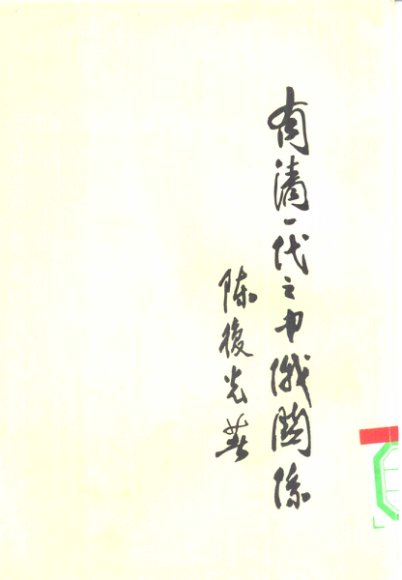 有清一代之中俄關係
陈復光著